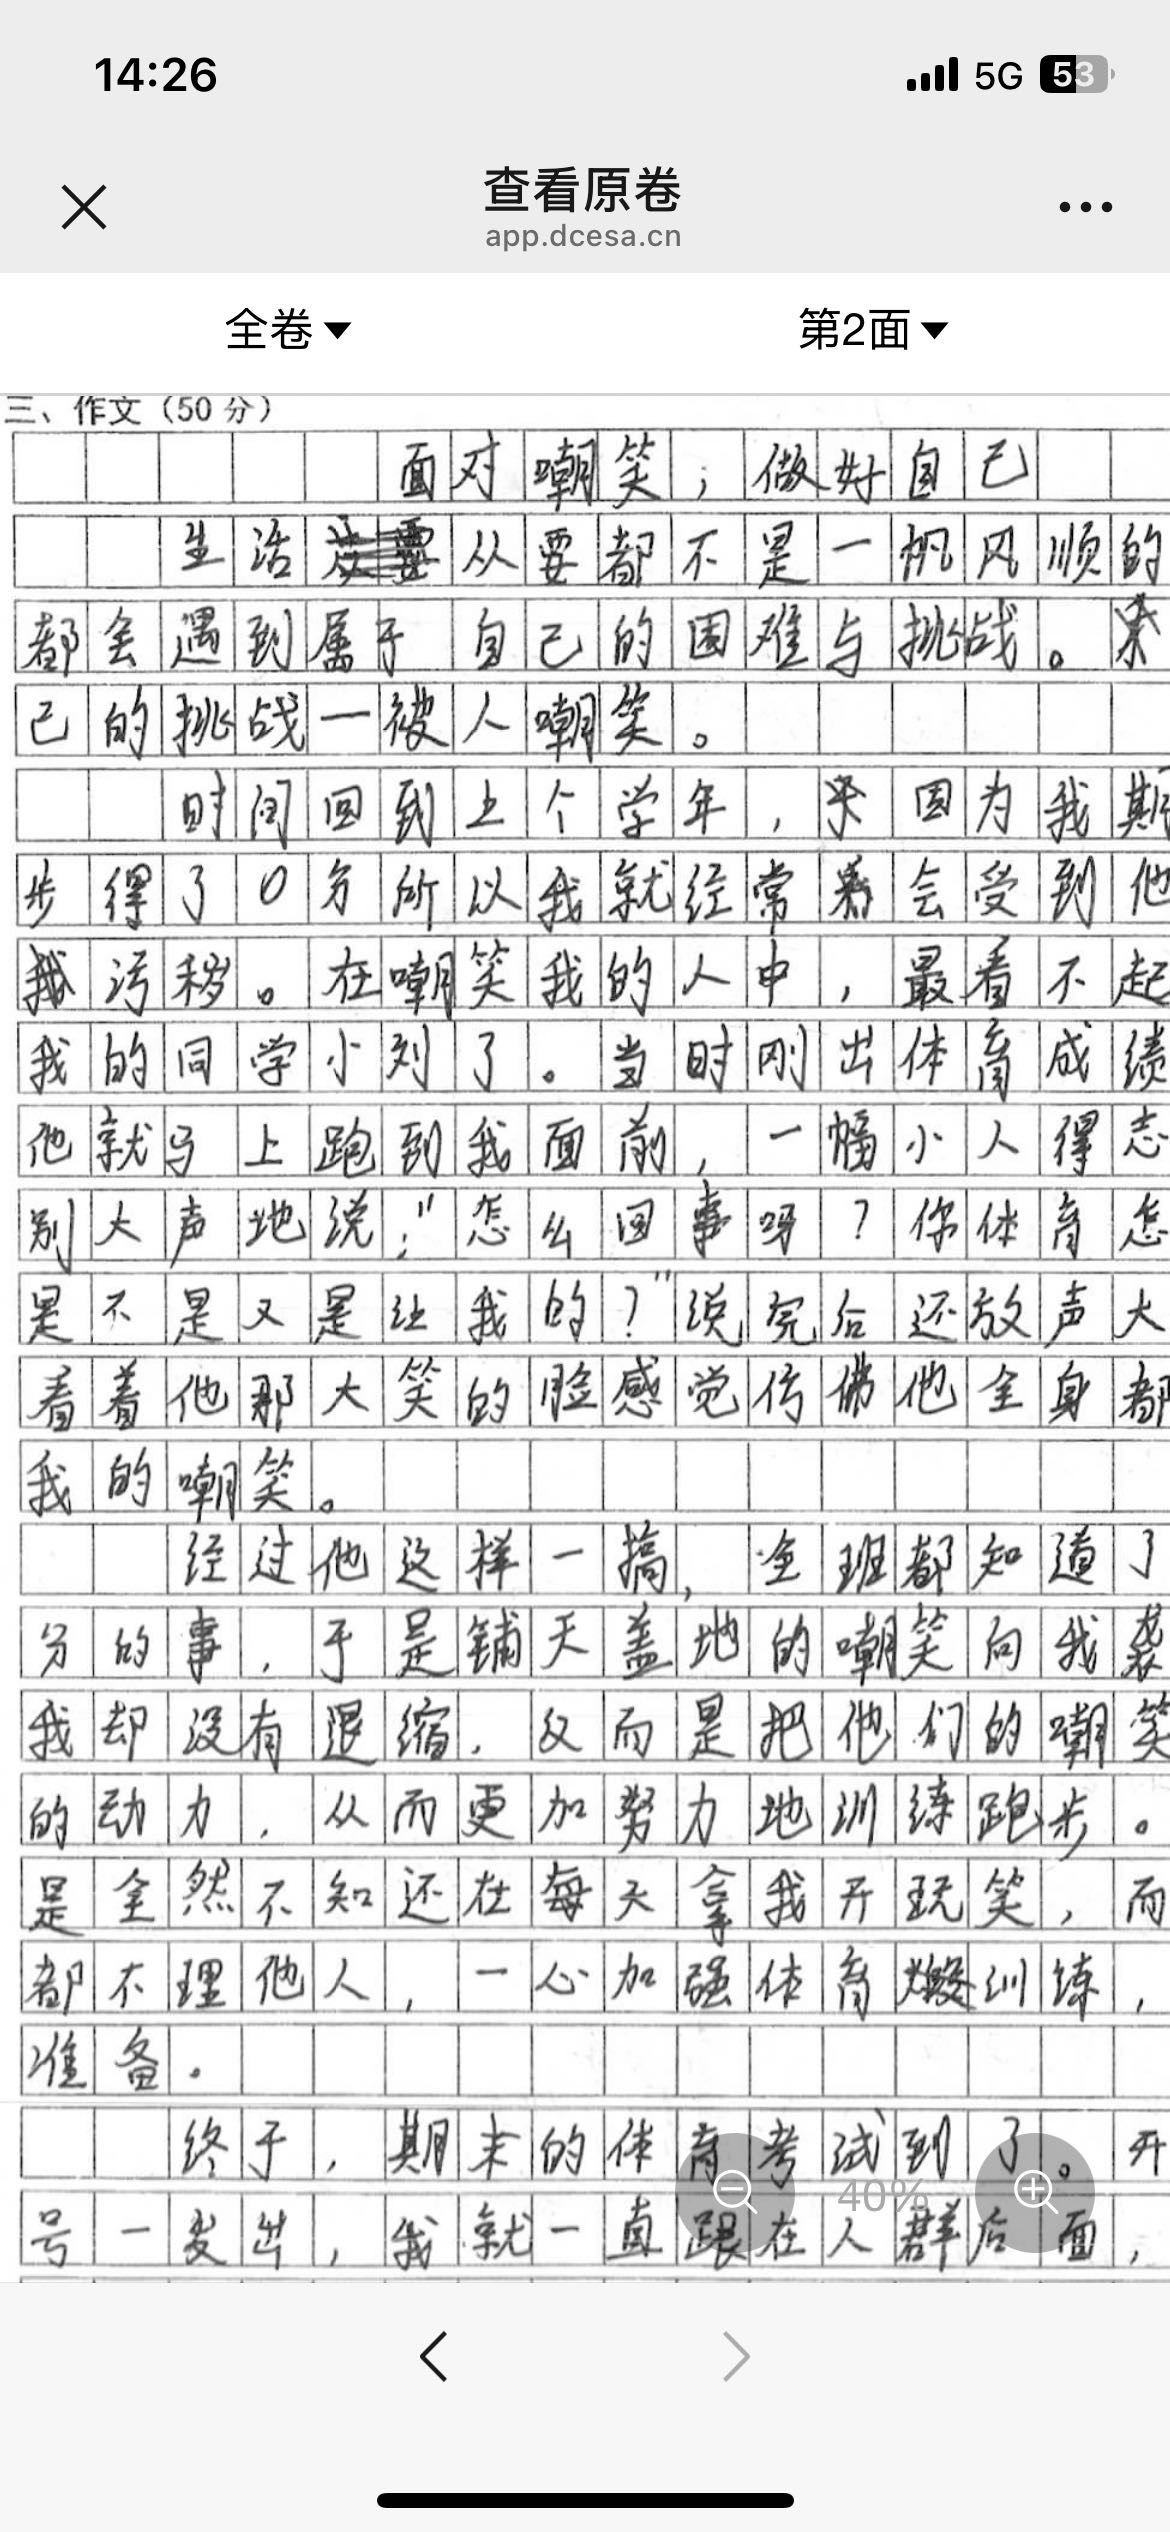 14:26
5G 53
查看原卷
app.dcesa.cn
全卷
第2面
三、作文（50分）
面对嘲笑，做好自己
生活从要都不是一帆风顺的
都会遇到属于自己的困难与挑战。
己的挑战一被人嘲笑。
时间回到上个学年，因为我期
步得了0分所以我就经常会受到他
我污秽。在嘲笑我的人中，最看不起
我的同学小刘了。当时刚出体育成绩
他就马上跑到我面前，一幅小人得志
别大声地说："怎么回事呀？你体育怎
是不是又是让我的？"说完后还放声大
看着他那大笑的脸感觉仿佛他全身都
我的嘲笑。
经过他这样一搞，全班都知道了
分的事，于是铺天盖地的嘲笑向我袭
我却没有退缩，反而是把他们的嘲笑
的动力，从而更加努力地训练跑步。
是全然不知还在每天拿我开玩笑，而
都不理他人，一心加强体育训练，
准备。
终于，期末的体育考试到了。开
40%
号一发出，我就一直跟在人群后面，